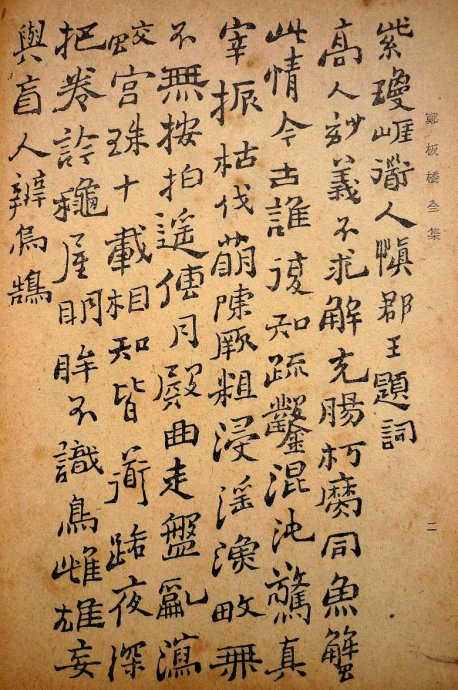 鄭板橋全集
紫瓊崕衟人愼郡王題詞
高人玅義不求解充腸朽腐同魚蟹
此情今古誰復知疏鑿混沌驚真
宰振枯伐萌陳厥粗浸淫漁畋無
不無按拍遙傳月殿曲走盤亂瀉
蛟宮珠十載相知皆衟路夜深
把卷訡龝屋明眸不識鳥雌雄妄
與盲人辨烏鵠
二